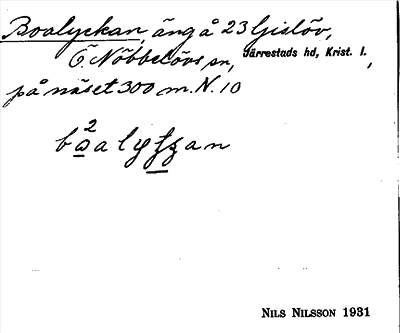 Boalyckan, äng å 23 Gislöv,
Ö. Nöbbelövs sn, Järrestads hd, Krist. l.,
på näset 300 m. N. 10
NILS NILSSON 1931